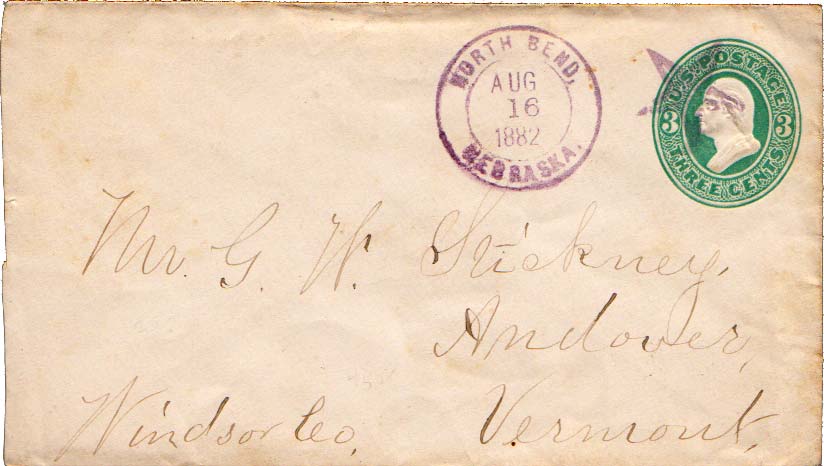 NORTH BEND,
AUG
16
1882
NEBRASKA.
U.S. POSTAGE
3 3
THREE CENTS
Mr. G. W. Stickney,
Andover,
Windsor Co, Vermont,